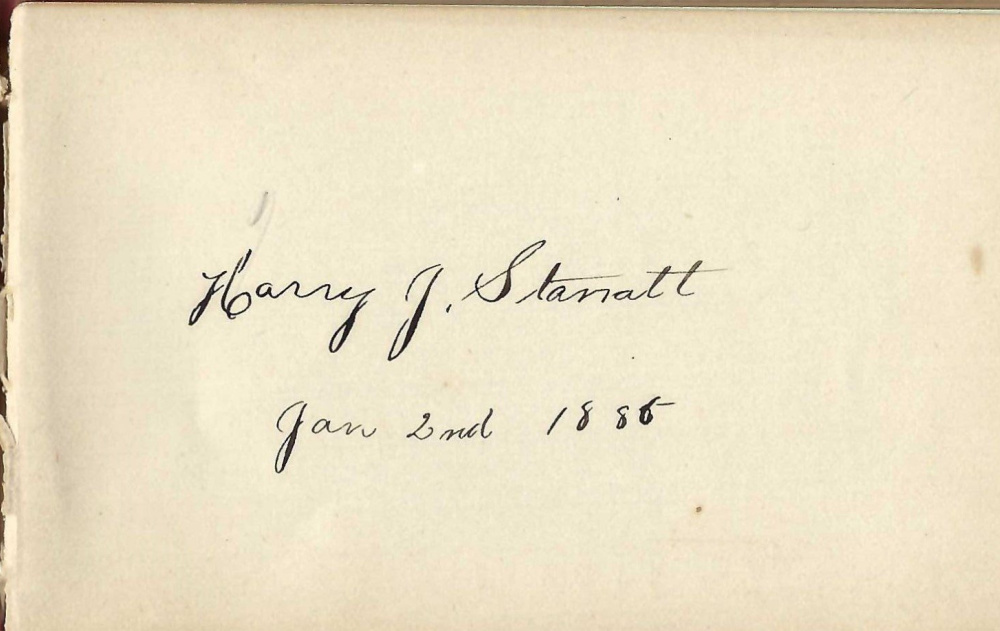 Harry J. Starratt
Jan 2nd 1886